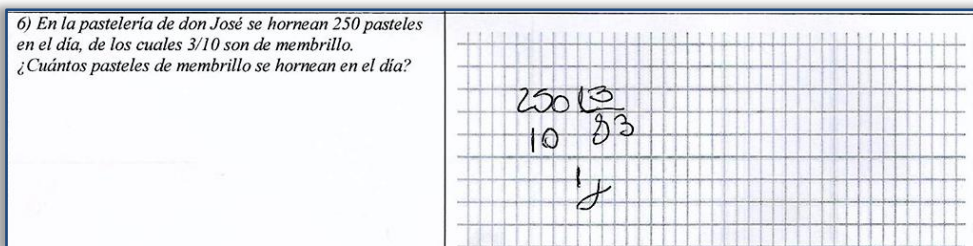 6) En la pastelería de don José se hornean 250 pasteles
en el día, de los cuales 3/10 son de membrillo.
¿Cuántos pasteles de membrillo se hornean en el día?
250 3
10 83
1